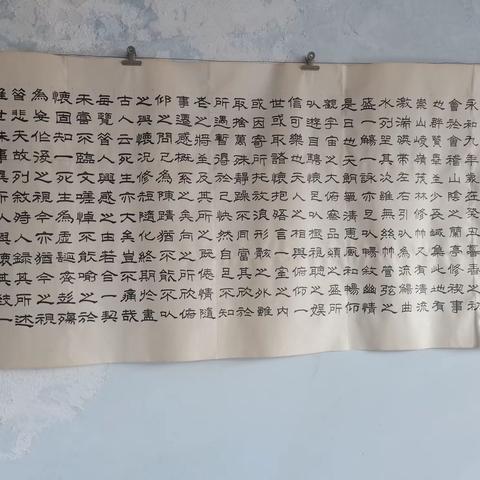 永和九年歲在癸丑暮春之初
會於會稽山陰之蘭亭修禊事
也群賢畢至少長咸集此地有
崇山峻嶺茂林修竹又有清流
激湍映帶左右引以為流觴曲
水列坐其次雖無絲竹管弦之
盛一觴一詠亦足以暢敘幽情
是日也天朗氣清惠風和暢仰
觀宇宙之大俯察品類之盛所
以遊目騁懷足以極視聽之娛
信可樂也夫人之相與俯仰一
世或取諸懷抱悟言一室之內
或因寄所託放浪形骸之外雖
取捨萬殊靜躁不同當其欣於
所遇暫得於己快然自足不知
老之將至及其所之既倦情隨
事遷感慨係之矣向之所欣俯
仰之間已為陳跡猶不能不以
之興懷況修短隨化終期於盡
古人云死生亦大矣豈不痛哉
每覽昔人興感之由若合一契
未嘗不臨文嗟悼不能喻之於
懷固知一死生為虛誕齊彭殤
為妄作後之視今亦猶今之視
昔悲夫故列敘時人錄其所述
雖世殊事異所以興懷其致一